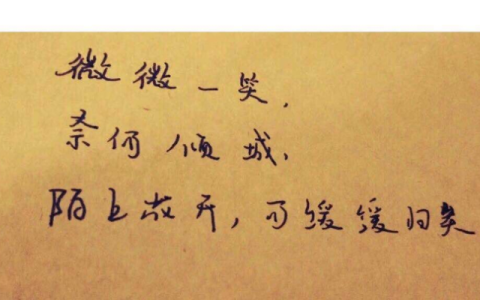 微微一笑,
奈何倾城、
陌上花开,可缓缓归矣